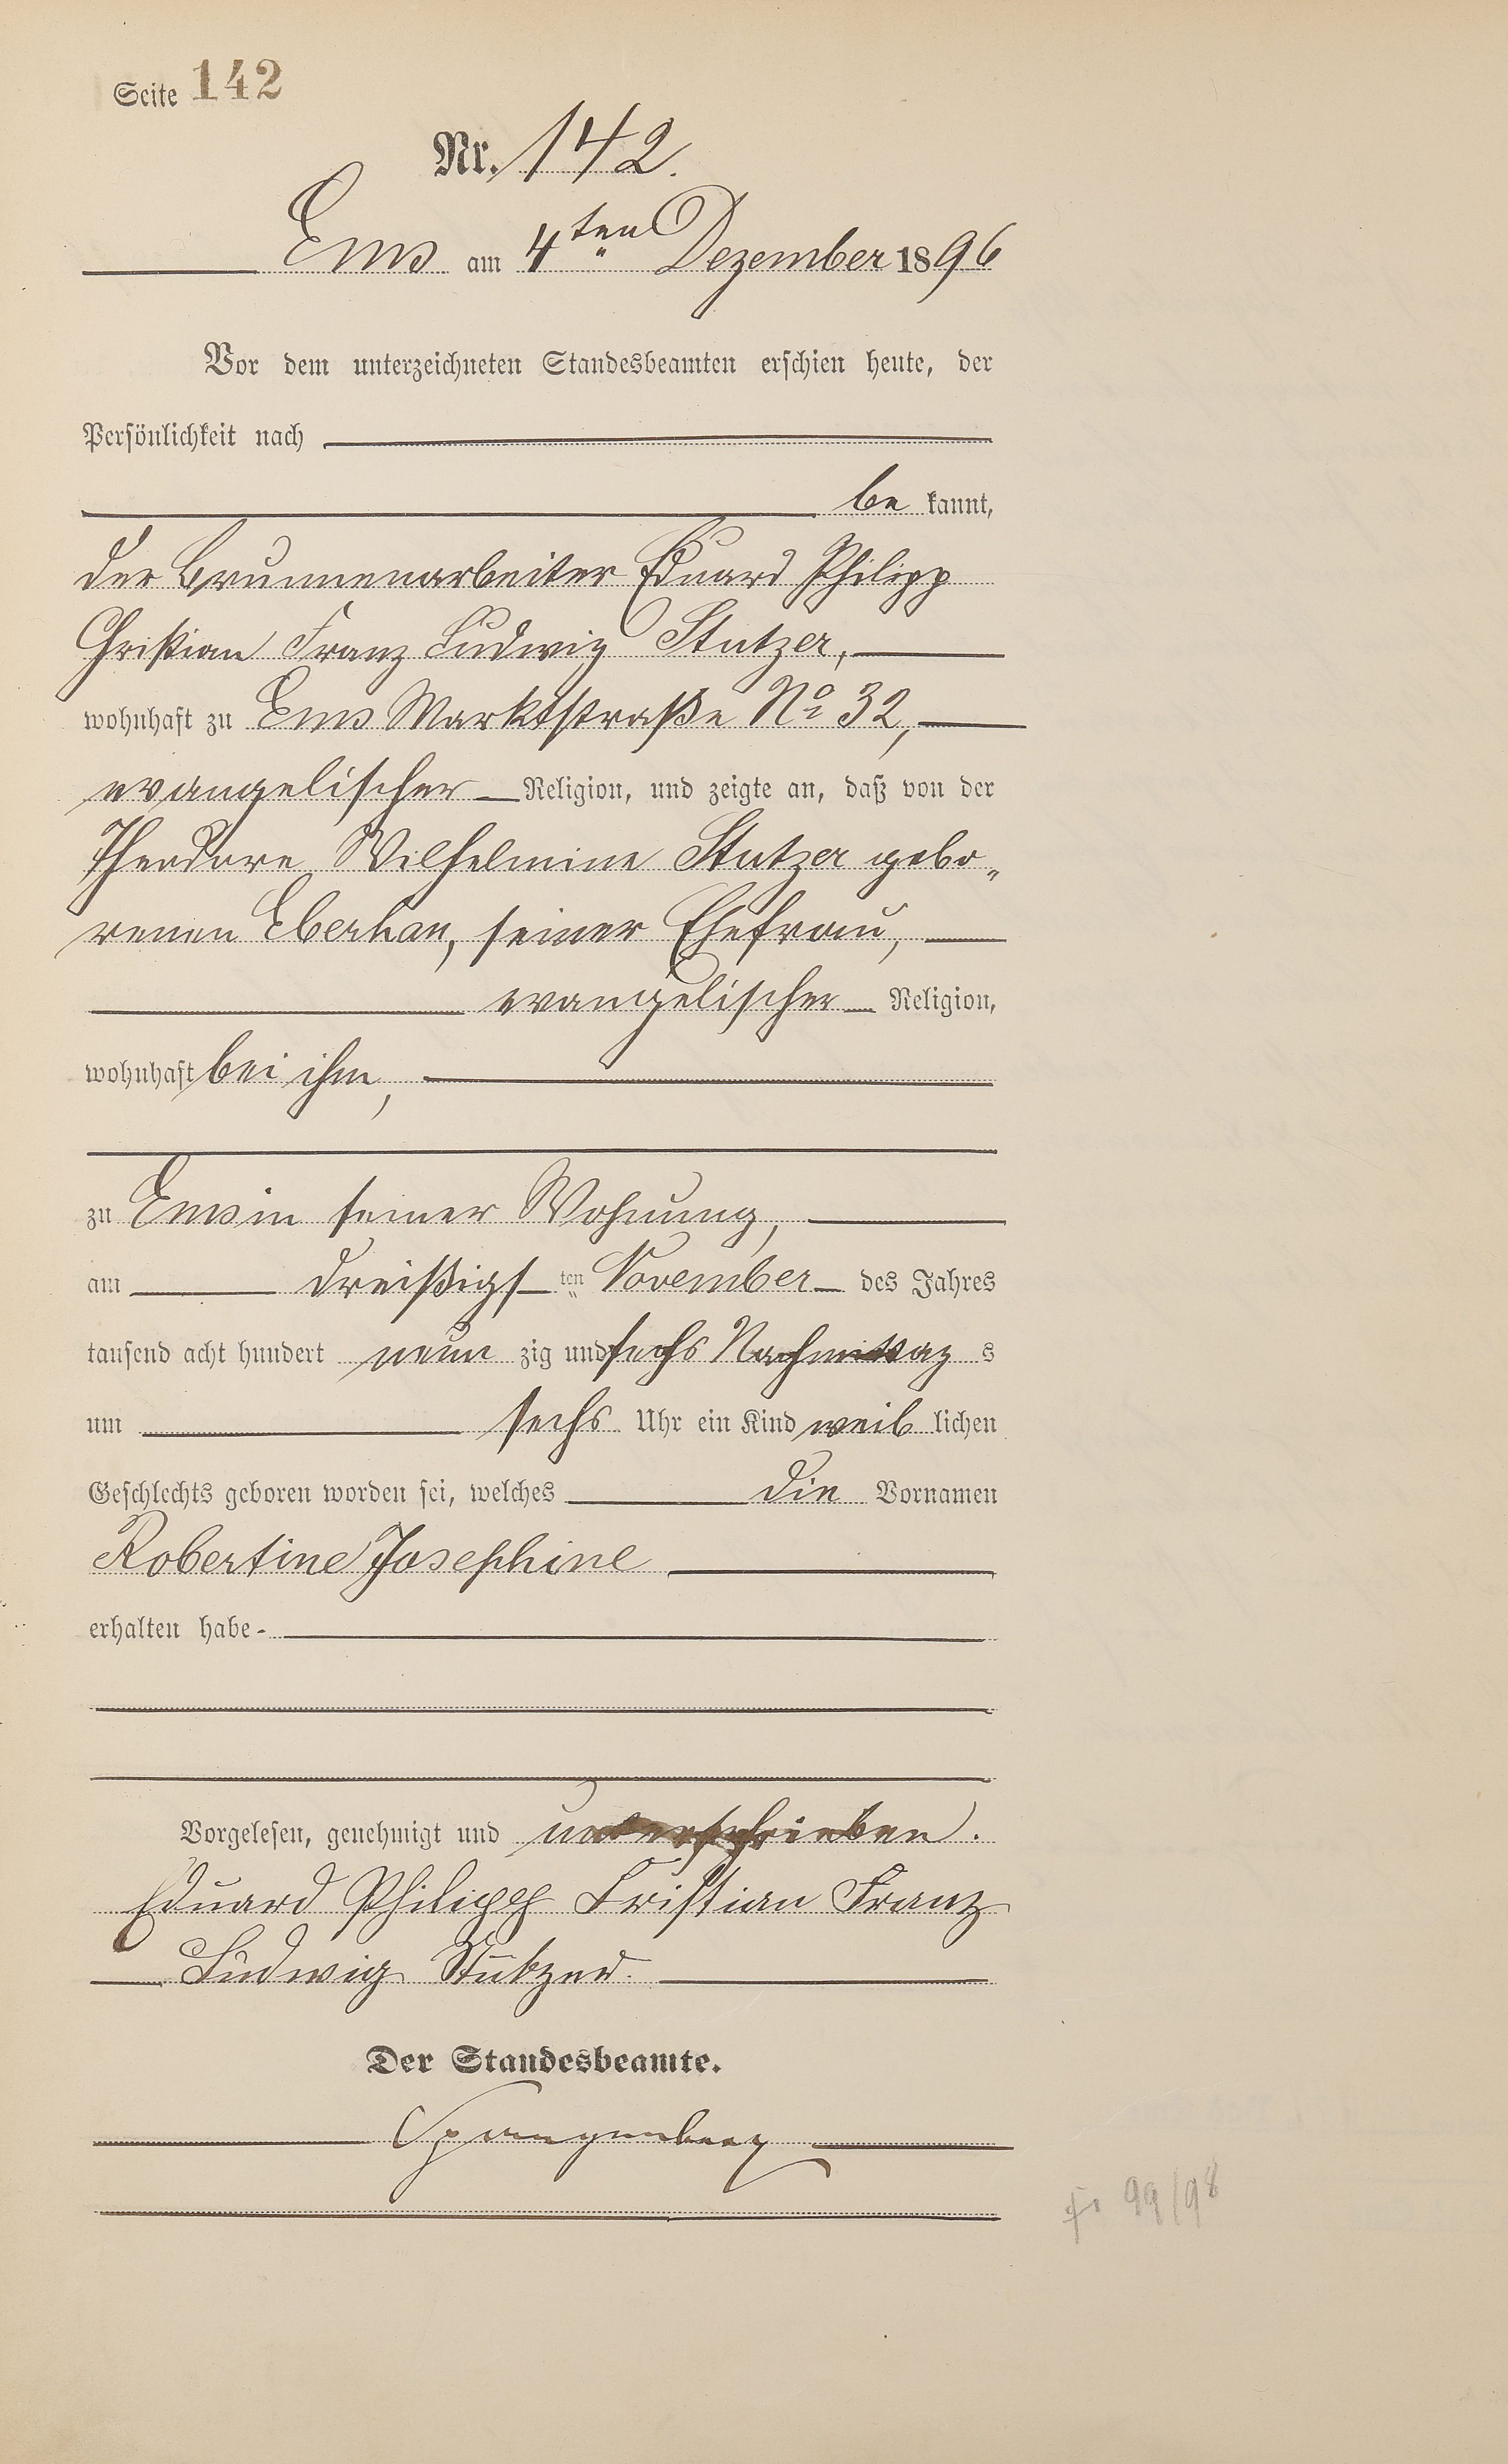 Seite 142
Nr. 142.
Ems am 4ten Dezember 1896
Vor dem unterzeichneten Standesbeamten erschien heute, der
Persönlichkeit nach
be kannt,
der Brunnenarbeiter Eduard Philipp
Christian Franz Ludwig Stutzer,
wohnhaft zu Ems Marktstraße No 32,
evangelischer Religion, und zeigte an, daß von der
Theodore Wilhelmine Stutzer gebo„
renen Eberhan, seiner Ehefrau,
evangelischer Religion,
wohnhaft bei ihm,
zu Ems in seiner Wohnung,
am dreißigs ten November des Jahres
tausend acht hundert neun zig und sechs Nachmittag s
um sechs Uhr ein Kind weib lichen
Geschlechts geboren worden sei, welches die Vornamen
Robertine Josephine
erhalten habe
Vorgelesen, genehmigt und unterschrieben.
Eduard Philipp Cristian Franz
Ludwig Stutzer.
Der Standesbeamte.
Spangenberg
99/98